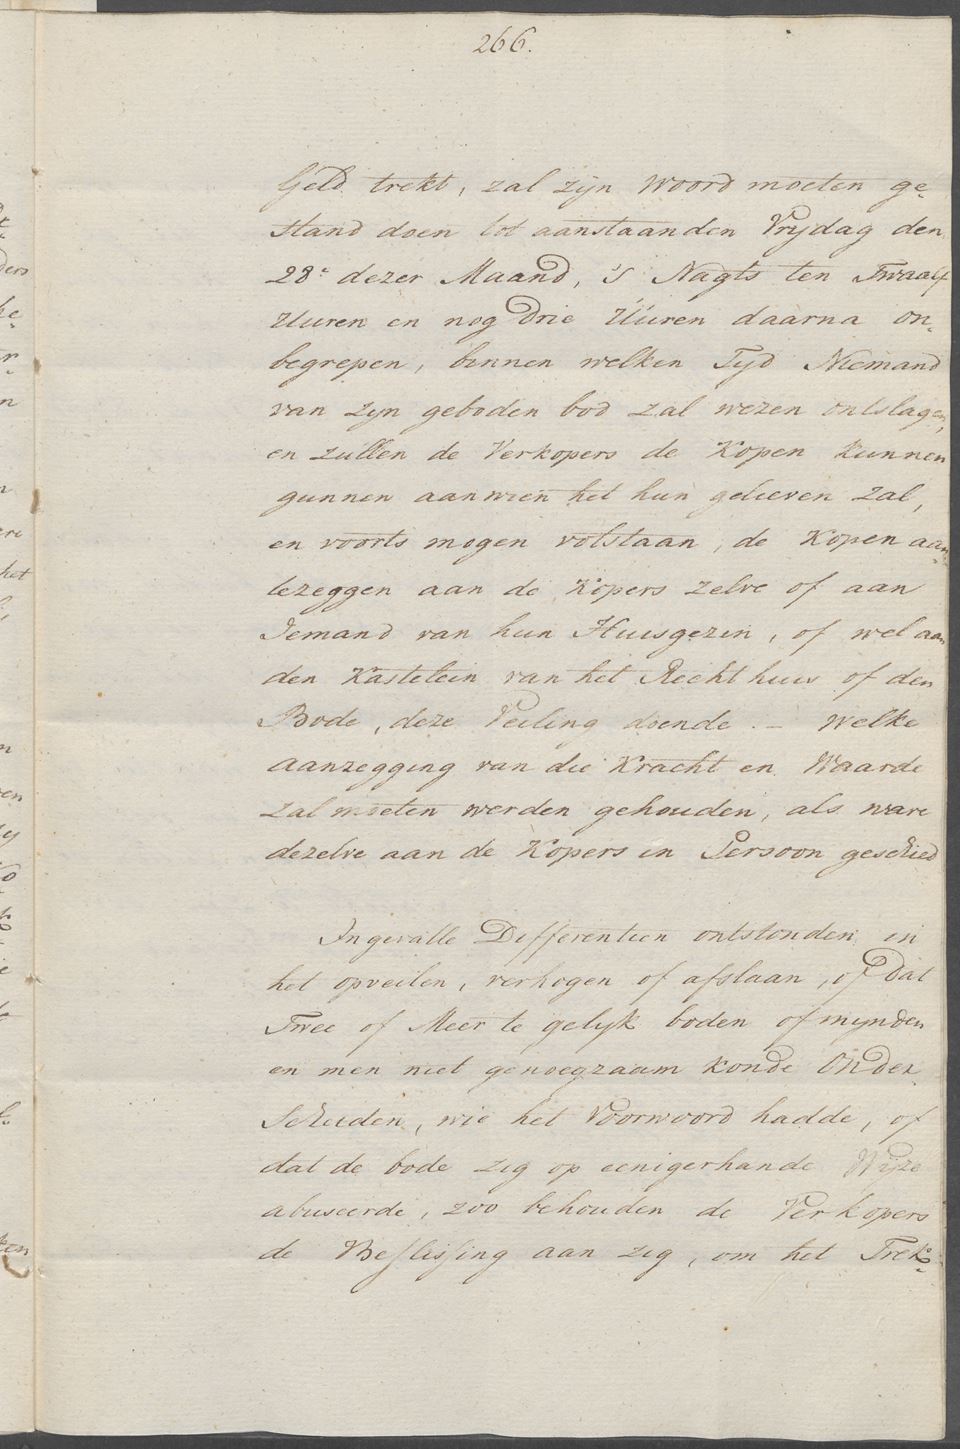 266.
Geld trekt, zal zijn Woord moeten ge-
stand doen tot aanstaanden Vrijdag den
28e dezer Maand, 's Nagts ten Twaalf
Uuren en nog Drie Uuren daarna on-
begrepen, binnen welken Tijd Niemand
van zijn geboden bod zal wezen ontslagen,
en zullen de Verkopers de Kopen kunnen
gunnen aan wien het hun gelieven zal,
en voorts mogen volstaan, de Kopen aan-
tezeggen aan de Kopers zelve of aan
Iemand van hun Huisgezin, of wel aan
den Kastelein van het Recht huis of den
Bode, deze Veiling doende. - Welke
aanzegging van die Kracht en Waarde
zal moeten werden gehouden, als ware
dezelve aan de Kopers in Persoon geschied
Ingevalle Differentien ontstonden in
het opveilen, verhogen of afslaan, of dat
Twee of Meer te gelijk boden of mynden
en men niet genoegzaam konde Onder-
scheiden, wie het Voorwoord hadde, of
dat de bode zig op eenigerhande Wijze
abuseerde, zoo behouden de Verkopers
de Beslissing aan zig, om het Trek-